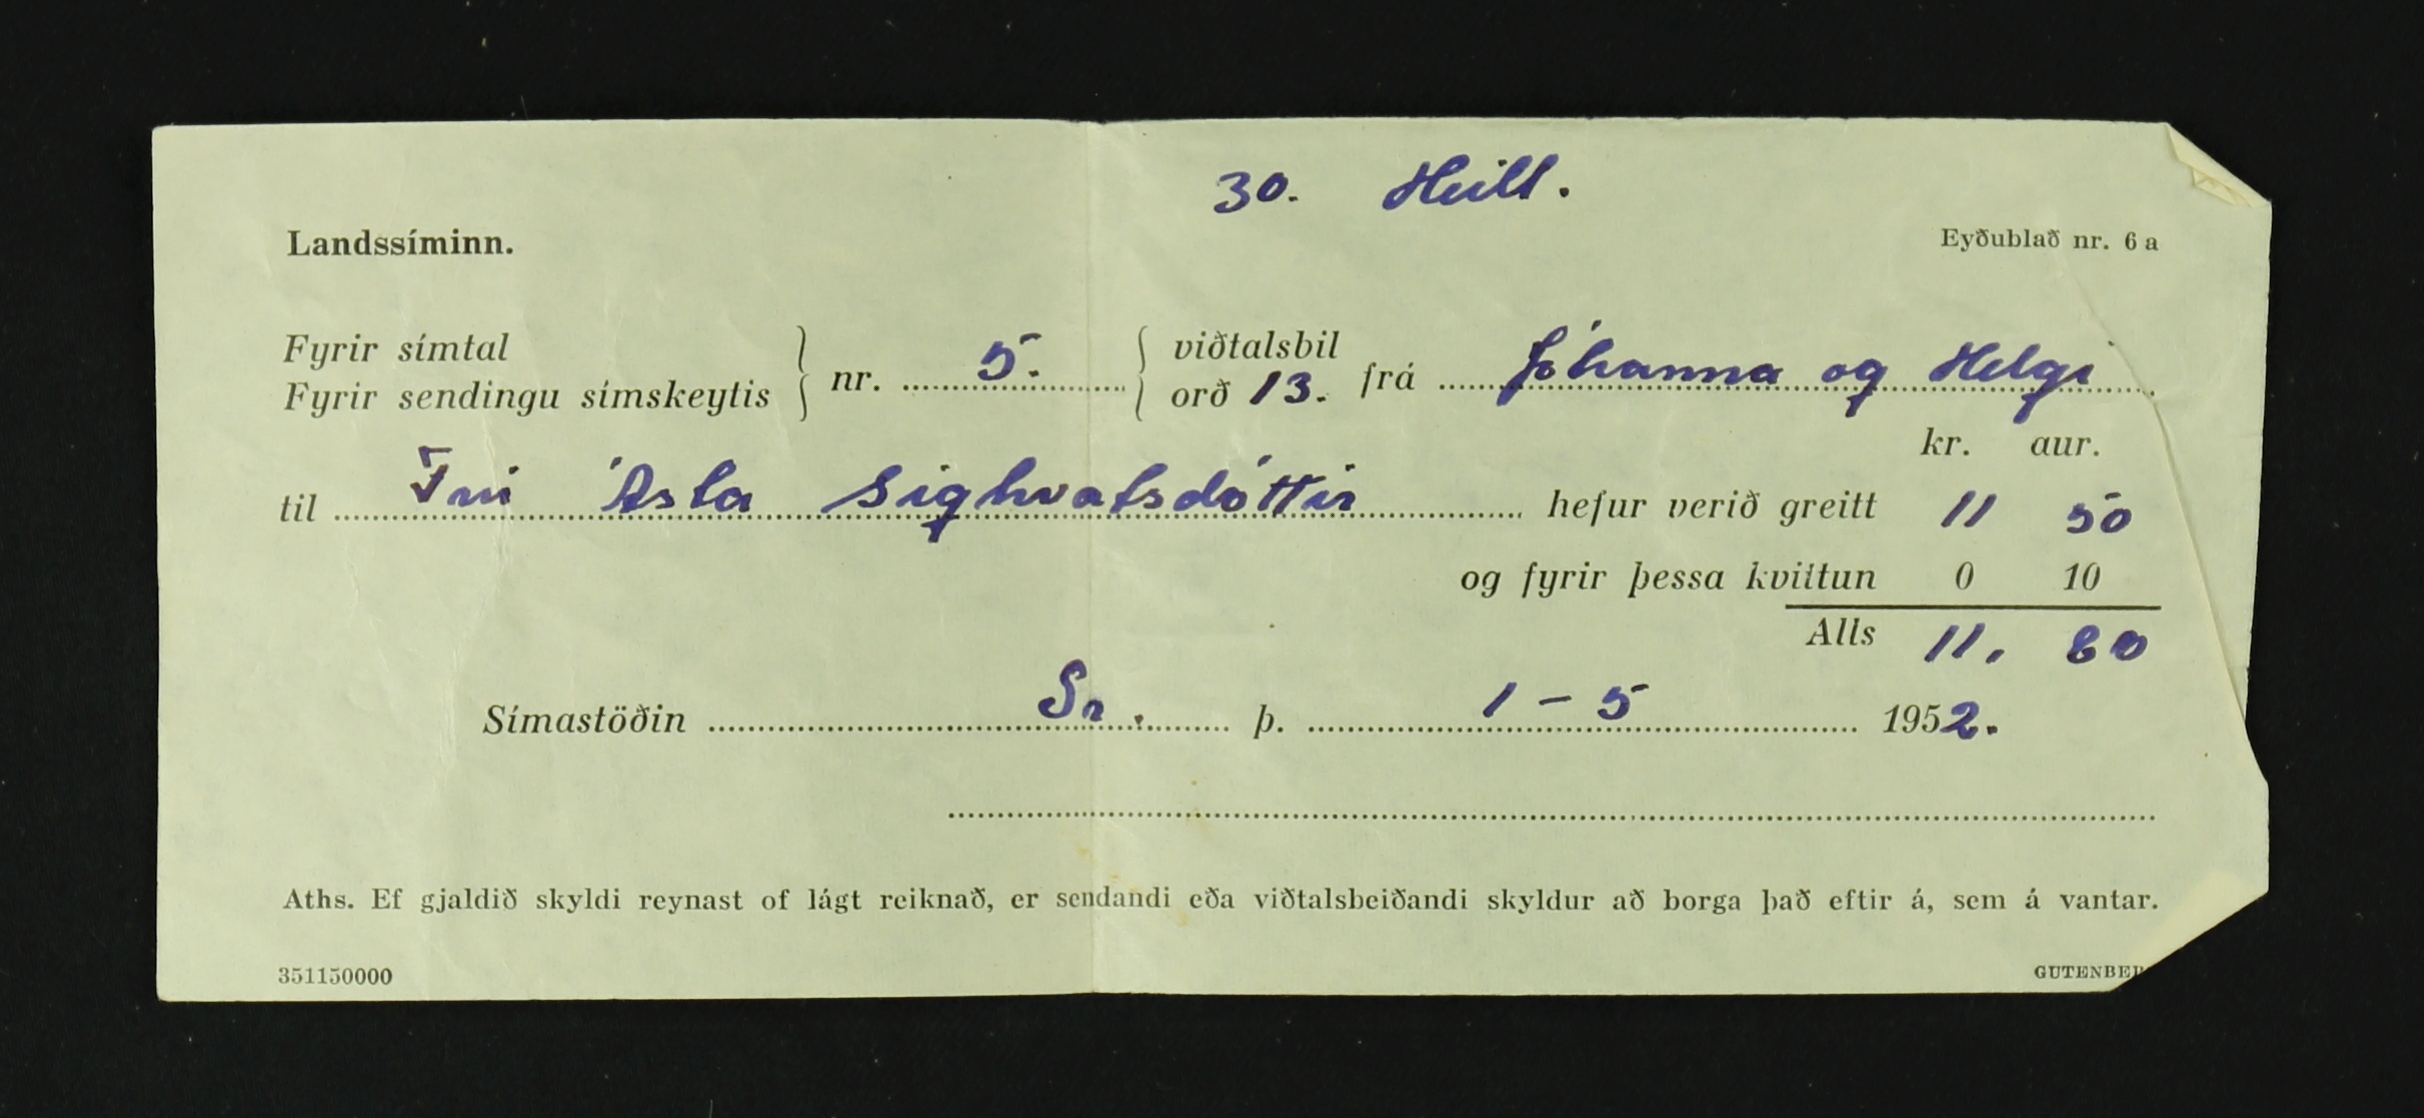 30. Heill.
Landssíminn.
Eyðublað nr. 6 a
Fyrir símtal
Fyrir sendingu símskeytis } nr. 5. { viðtalsbil
orð 13. frá Jóhanna og Helgi
kr. aur.
til Frú Ásta Sighvatsdóttir hefur verið greitt 11 50
og fyrir þessa kvittun 0 10
Alls 11. 60
Símastöðin Sr. þ. 1 - 5 1952.
Aths. Ef gjaldið skyldi reynast of lágt reiknað, er sendandi eða viðtalsbeiðandi skyldur að borga það eftir á, sem á vantar.
351150000
GUTENBER